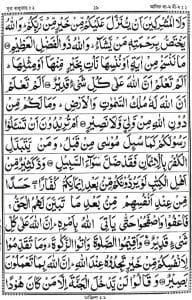 وَلَا الْمُشْرِكِيْنَ اَنْ يُّنَزَّلَ عَلَيْكُمْ مِّنْ خَيْرٍ مِّنْ رَّبِّكُمْ وَاللّٰهُ
يَخْتَصُّ بِرَحْمَتِهٖ مَنْ يَّشَآءُ وَاللّٰهُ ذُو الْفَضْلِ الْعَظِيْمِ
مَا نَنْسَخْ مِنْ اٰيَةٍ اَوْ نُنْسِهَا نَاْتِ بِخَيْرٍ مِّنْهَآ اَوْ مِثْلِهَا
اَلَمْ تَعْلَمْ اَنَّ اللّٰهَ عَلٰى كُلِّ شَيْءٍ قَدِيْرٌ اَلَمْ تَعْلَمْ
اَنَّ اللّٰهَ لَهٗ مُلْكُ السَّمٰوٰتِ وَالْاَرْضِ وَمَا لَكُمْ مِّنْ دُوْنِ
اللّٰهِ مِنْ وَّلِيٍّ وَّلَا نَصِيْرٍ اَمْ تُرِيْدُوْنَ اَنْ تَسْـَٔلُوْا
رَسُوْلَكُمْ كَمَا سُئِلَ مُوْسٰى مِنْ قَبْلُ وَمَنْ يَّتَبَدَّلِ
الْكُفْرَ بِالْاِيْمَانِ فَقَدْ ضَلَّ سَوَآءَ السَّبِيْلِ وَدَّ كَثِيْرٌ مِّنْ
اَهْلِ الْكِتٰبِ لَوْ يَرُدُّوْنَكُمْ مِّنْ بَعْدِ اِيْمَانِكُمْ كُفَّارًا حَسَدًا
مِّنْ عِنْدِ اَنْفُسِهِمْ مِّنْ بَعْدِ مَا تَبَيَّنَ لَهُمُ الْحَقُّ
فَاعْفُوْا وَاصْفَحُوْا حَتّٰى يَاْتِيَ اللّٰهُ بِاَمْرِهٖ اِنَّ اللّٰهَ عَلٰى كُلِّ
شَيْءٍ قَدِيْرٌ وَاَقِيْمُوا الصَّلٰوةَ وَاٰتُوا الزَّكٰوةَ وَمَا تُقَدِّمُوْا
لِاَنْفُسِكُمْ مِّنْ خَيْرٍ تَجِدُوْهُ عِنْدَ اللّٰهِ اِنَّ اللّٰهَ بِمَا تَعْمَلُوْنَ
بَصِيْرٌ وَقَالُوْا لَنْ يَّدْخُلَ الْجَنَّةَ اِلَّا مَنْ كَانَ هُوْدًا